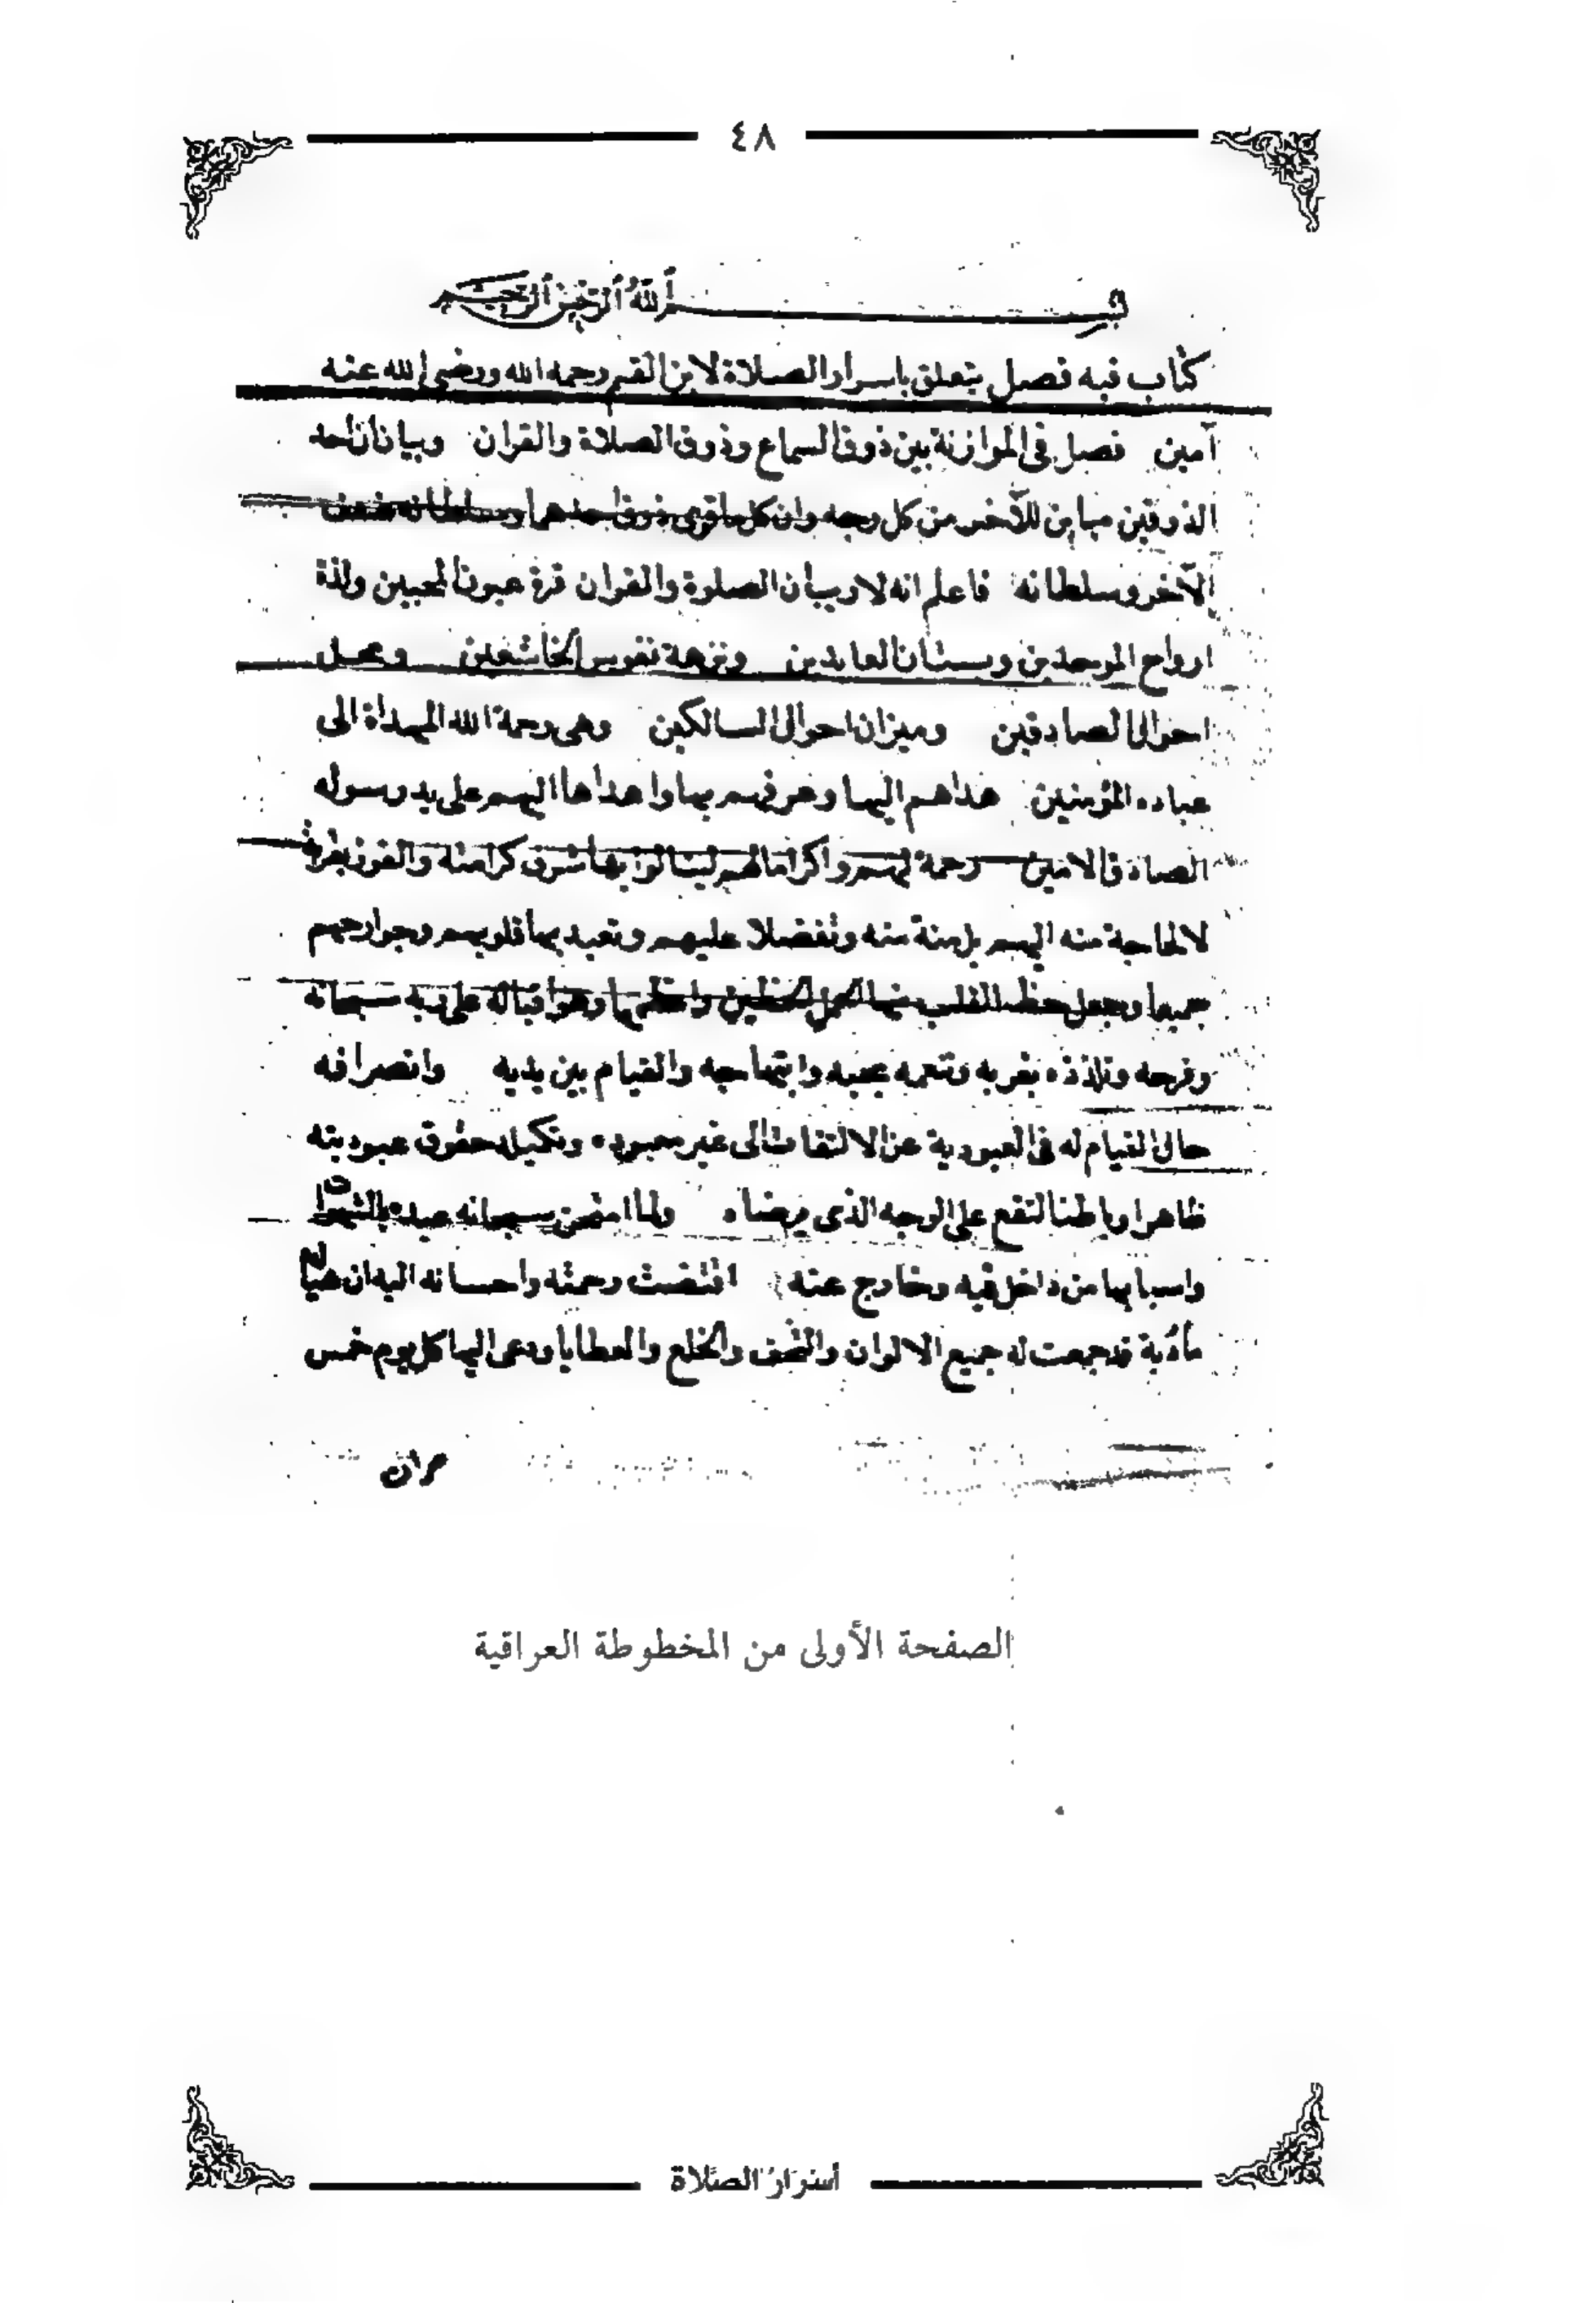 ٤٨
بسم الله الرحمن الرحيم
كتاب فيه فصل يتعلق باسرار الصلاة لابن القيم رحمه الله ورضي الله عنه
آمين فصل في الموازنة بين ذوق السماع وذوق الصلاة والقران وبيان ان احد
الذوقين مباين للآخر من كل وجه وان كل ما قوي ذوق احدهما وسلطانه ضعف
الآخر وسلطانه فاعلم انه لا ريب ان الصلوة والقران قرة عيون المحبين ولذة
ارواح الموحدين وبستان العابدين ونزهة نفوس الخاشعين ومحل
احوال الصادقين وميزان احوال السالكين وهي رحمة الله المهداة الى
عباده المؤمنين هداهم اليها وعرفهم بها واهداها اليهم على يد رسوله
الصادق الامين رحمة لهم واكراما لهم لينالوا بها شرف كرامته والفوز بقربه
لا لحاجة منه اليهم بل منة منه وتفضلا عليهم وتعبد بها قلوبهم وجوارحهم
جميعا وجعل حظ القلب منها اكمل الحظين واعظمها وهو اقباله على ربه سبحانه
وفرحه وتلذذه بقربه وتنعمه بحبه وابتهاجه والقيام بين يديه وانصرافه
حال القيام له في العبودية عن الالتفات الى غير معبوده وتكميله حقوق عبوديته
ظاهرا وباطنا لتقع على الوجه الذي يرضاه ولما امتحن سبحانه عبده بالشهوات
واسبابها من داخل فيه وخارج عنه اقتضت رحمته واحسانه اليه ان هيأ له
مأدبة قد جمعت له جميع الالوان والتحف والخلع والعطايا ودعى اليها كل يوم خمس
مرات
الصفحة الأولى من المخطوطة العراقية
أسرار الصلاة